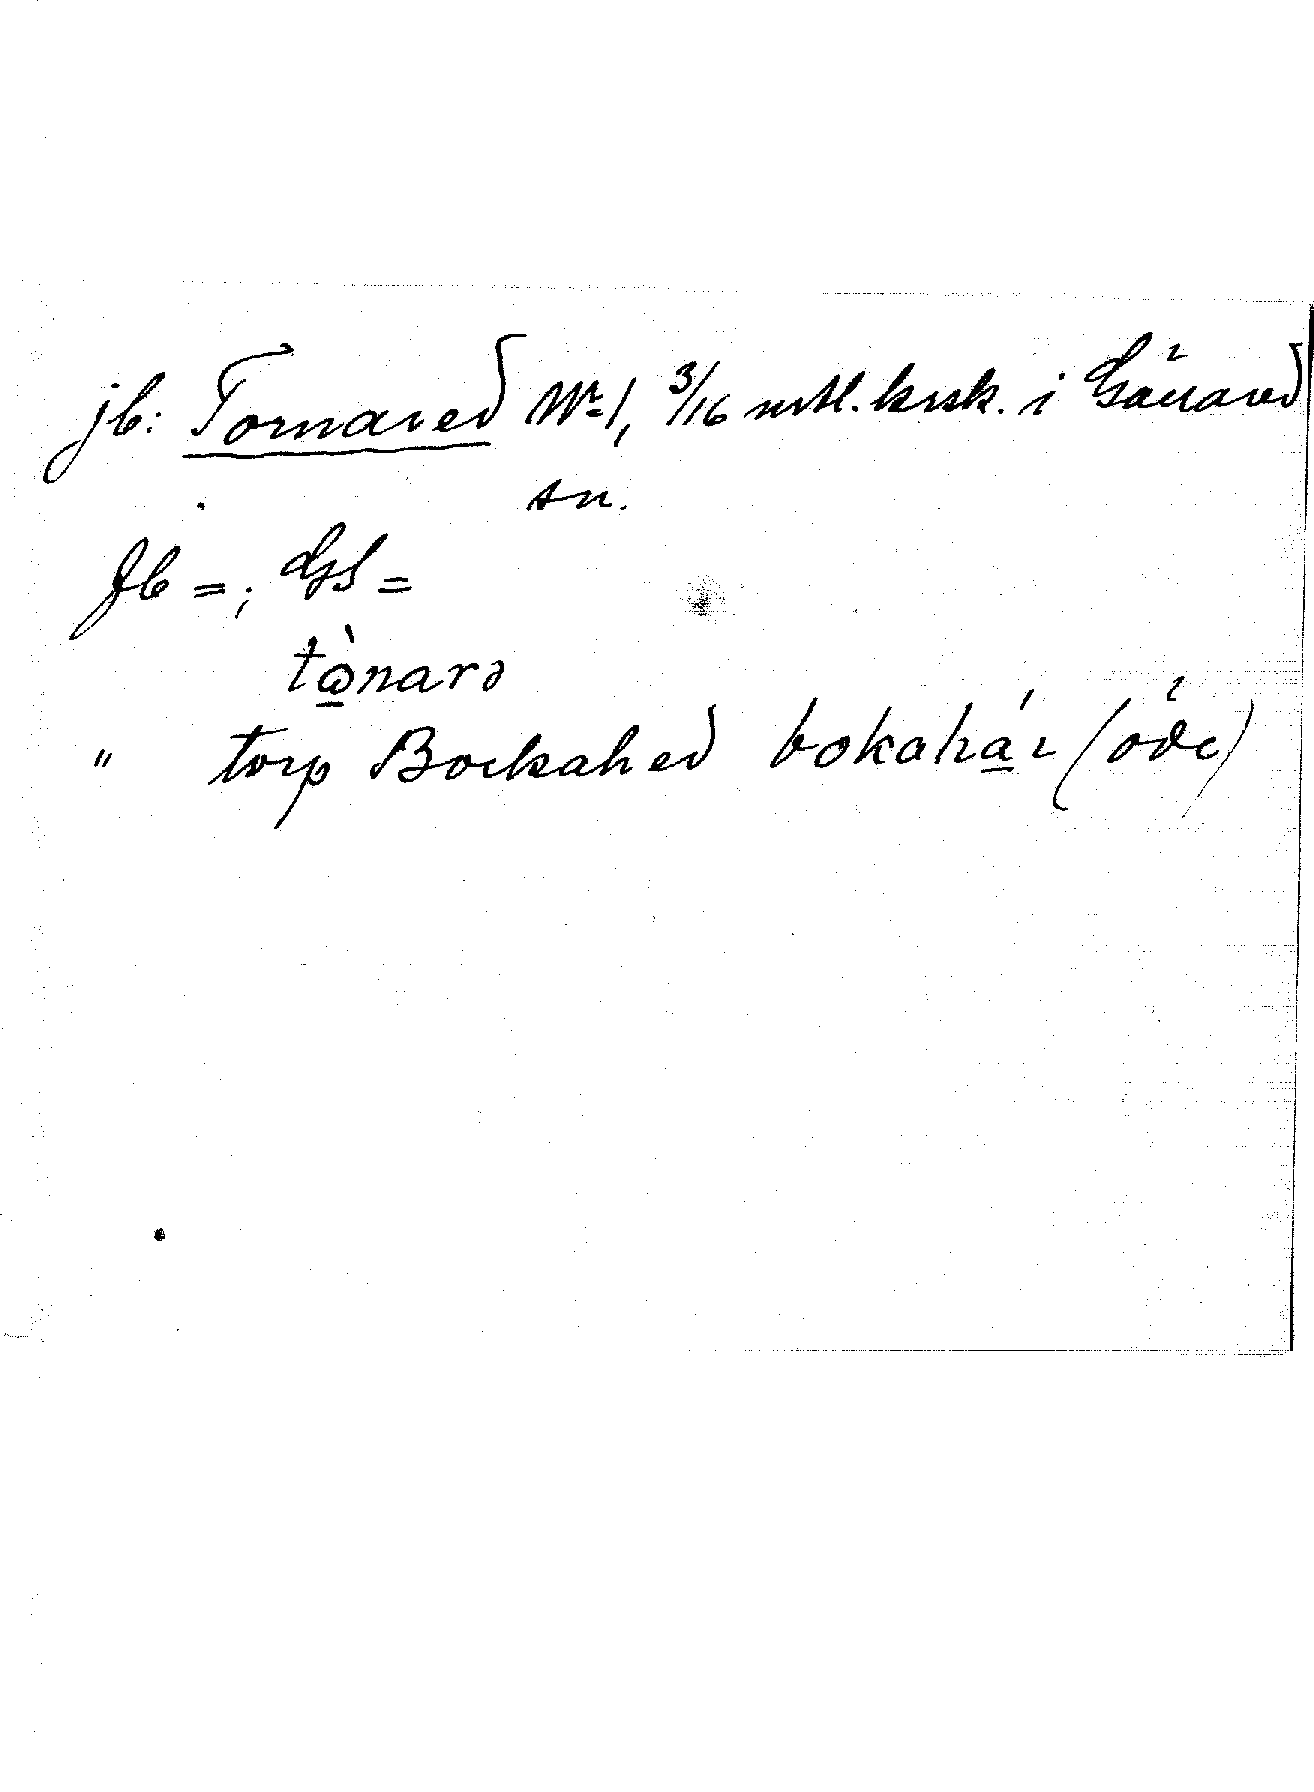 jb: Tornared Nr 1, 3/16 mtl. krsk. i Gällared
sn.
Jb =; GS =
tὼ̲narə
" torp Bockahed bokahá̲ɩ (öde)